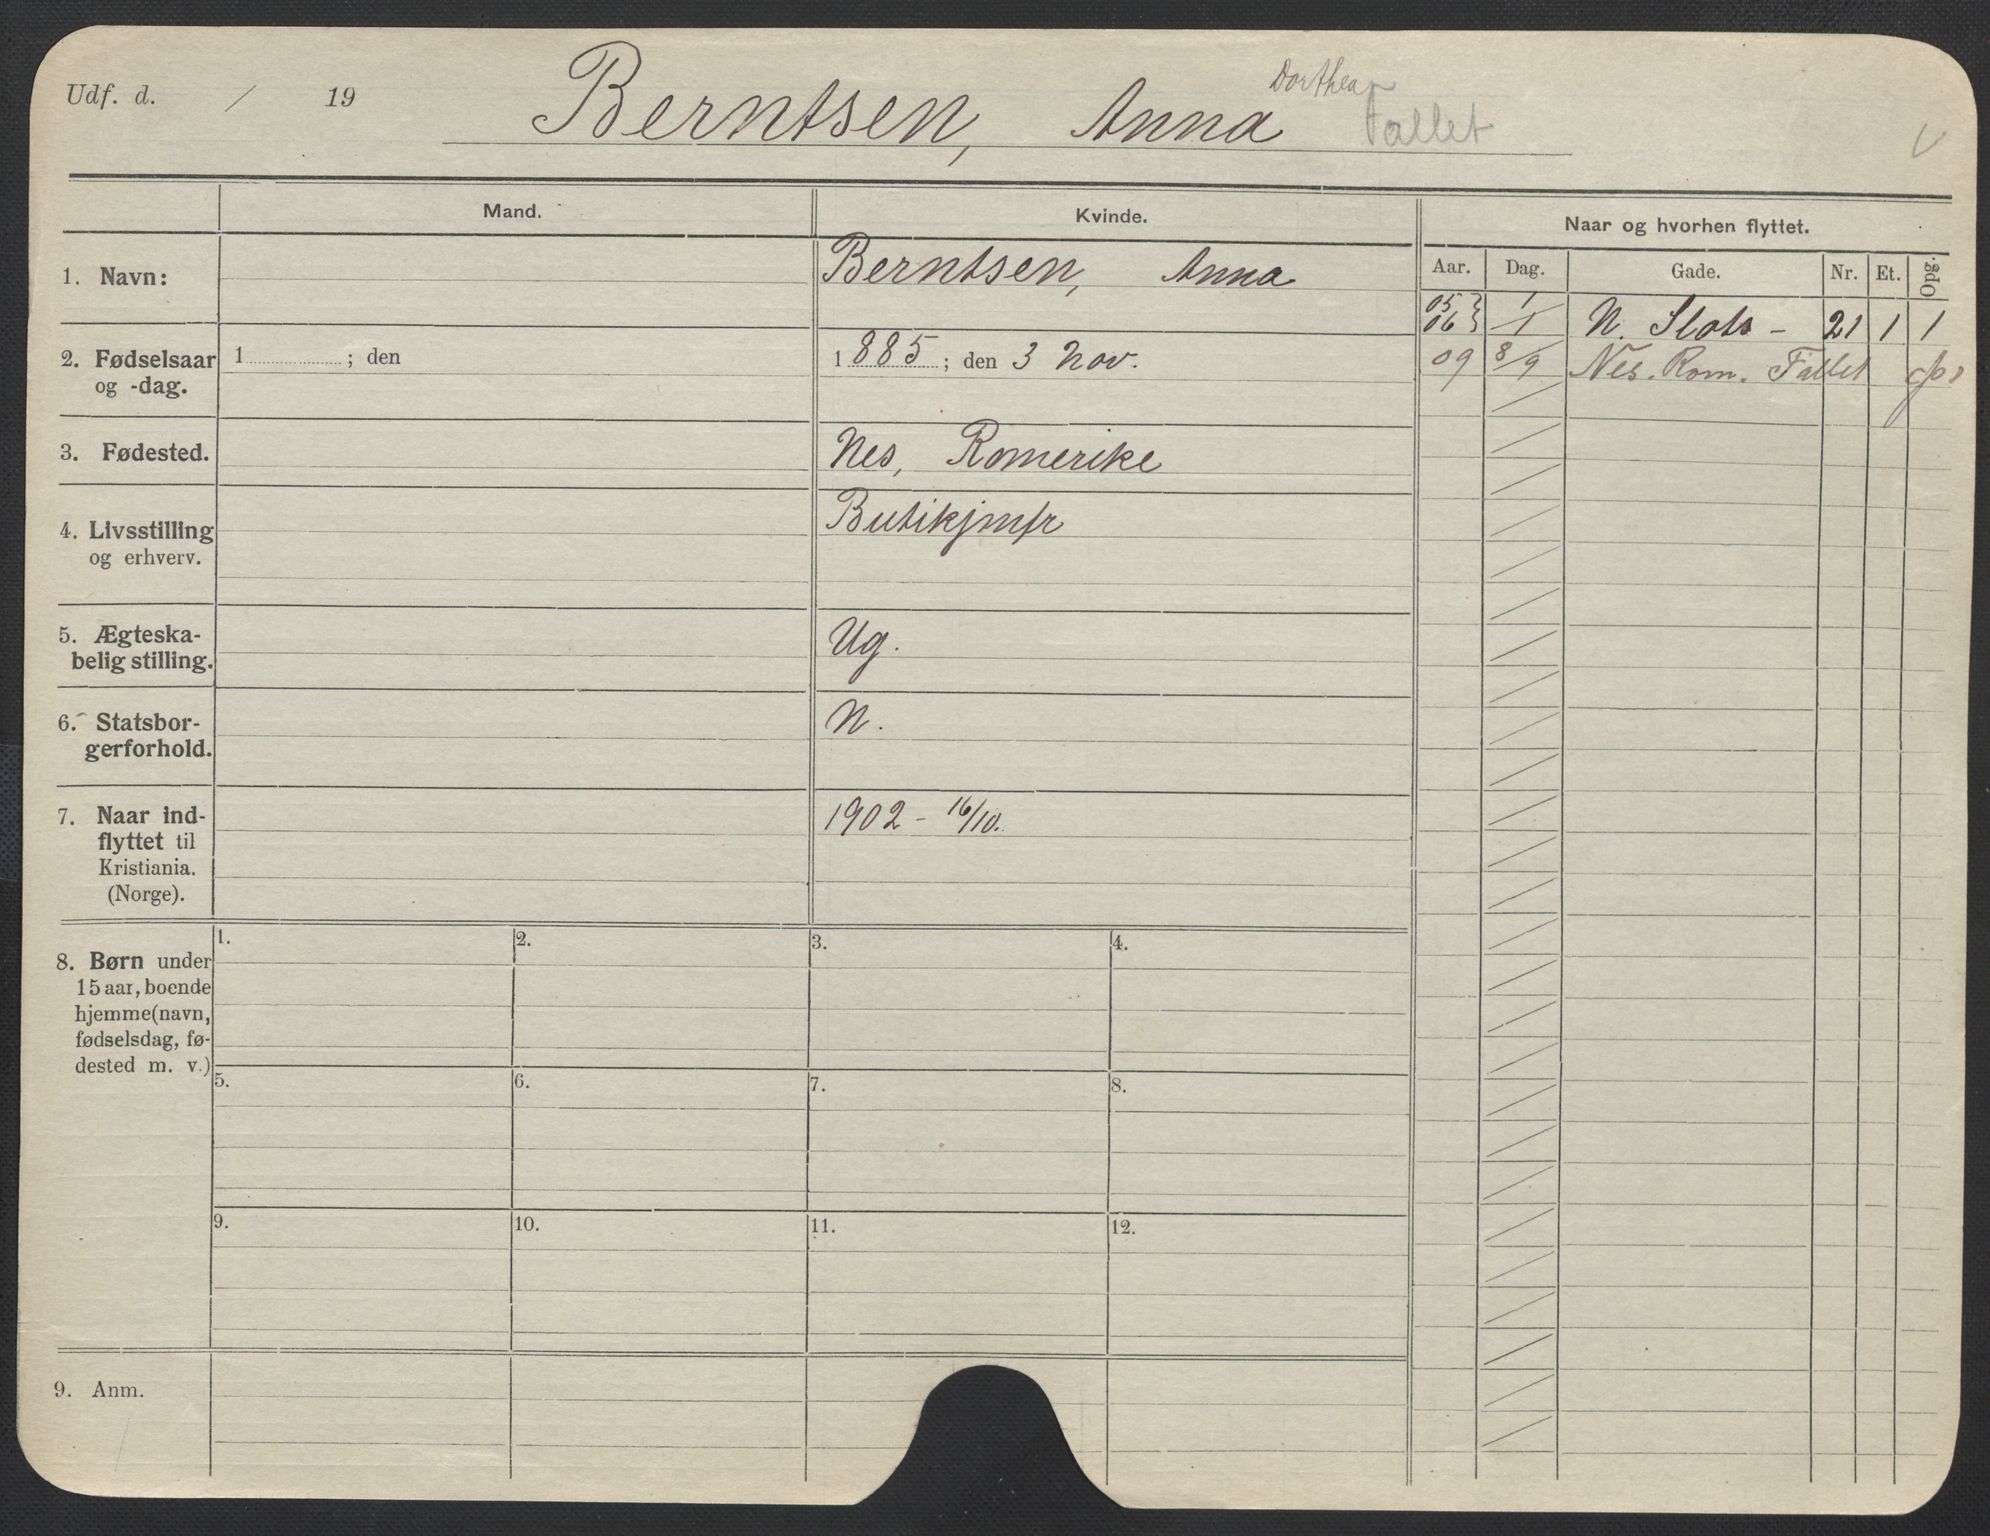 Udf. d. / 19
Berntsen, Anna Dorthea Fallet
Mand. Kvinde. Naar og hvorhen flyttet.
Aar. Dag. Gade. Nr. Et. Opg.
1. Navn: Berntsen, Anna
05 } 1/1 N. Slots- 21 1 1
06 }
2. Fødselsaar 1 ; den 1885 ; den 3 Nov.
og -dag.
09 8/9 Nes. Rom. Fallet
3. Fødested. Nes, Romerike
4. Livsstilling Butikjmfr
og erhverv.
5. Ægteska-
belig stilling. Ug.
6. Statsbor-
gerforhold. N.
7. Naar ind-
flyttet til
Kristiania.
(Norge). 1902 - 16/10.
8. Børn under
15 aar, boende
hjemme (navn,
fødselsdag, fø-
dested m. v.)
1. 2. 3. 4.
5. 6. 7. 8.
9. 10. 11. 12.
9. Anm.